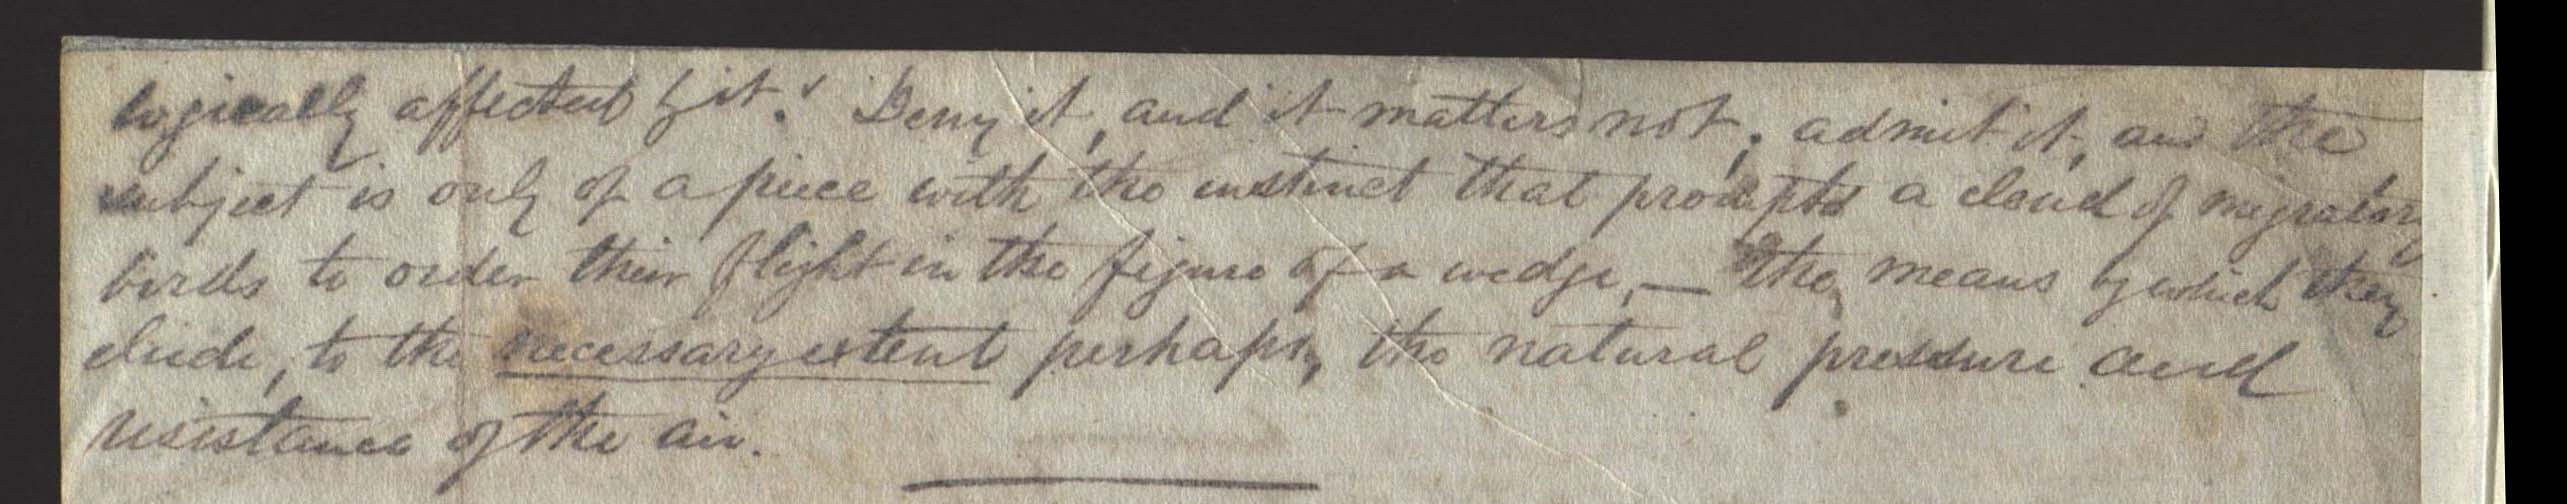 logically affected by it? Deny it, and it matters not; admit it, and the
subject is only of a piece with the instinct that prompts a cloud of migratory
birds to order their flight in the figure of a wedge, — the means by which they
elude, to the necessary extent perhaps, the natural pressure and
resistance of the air.